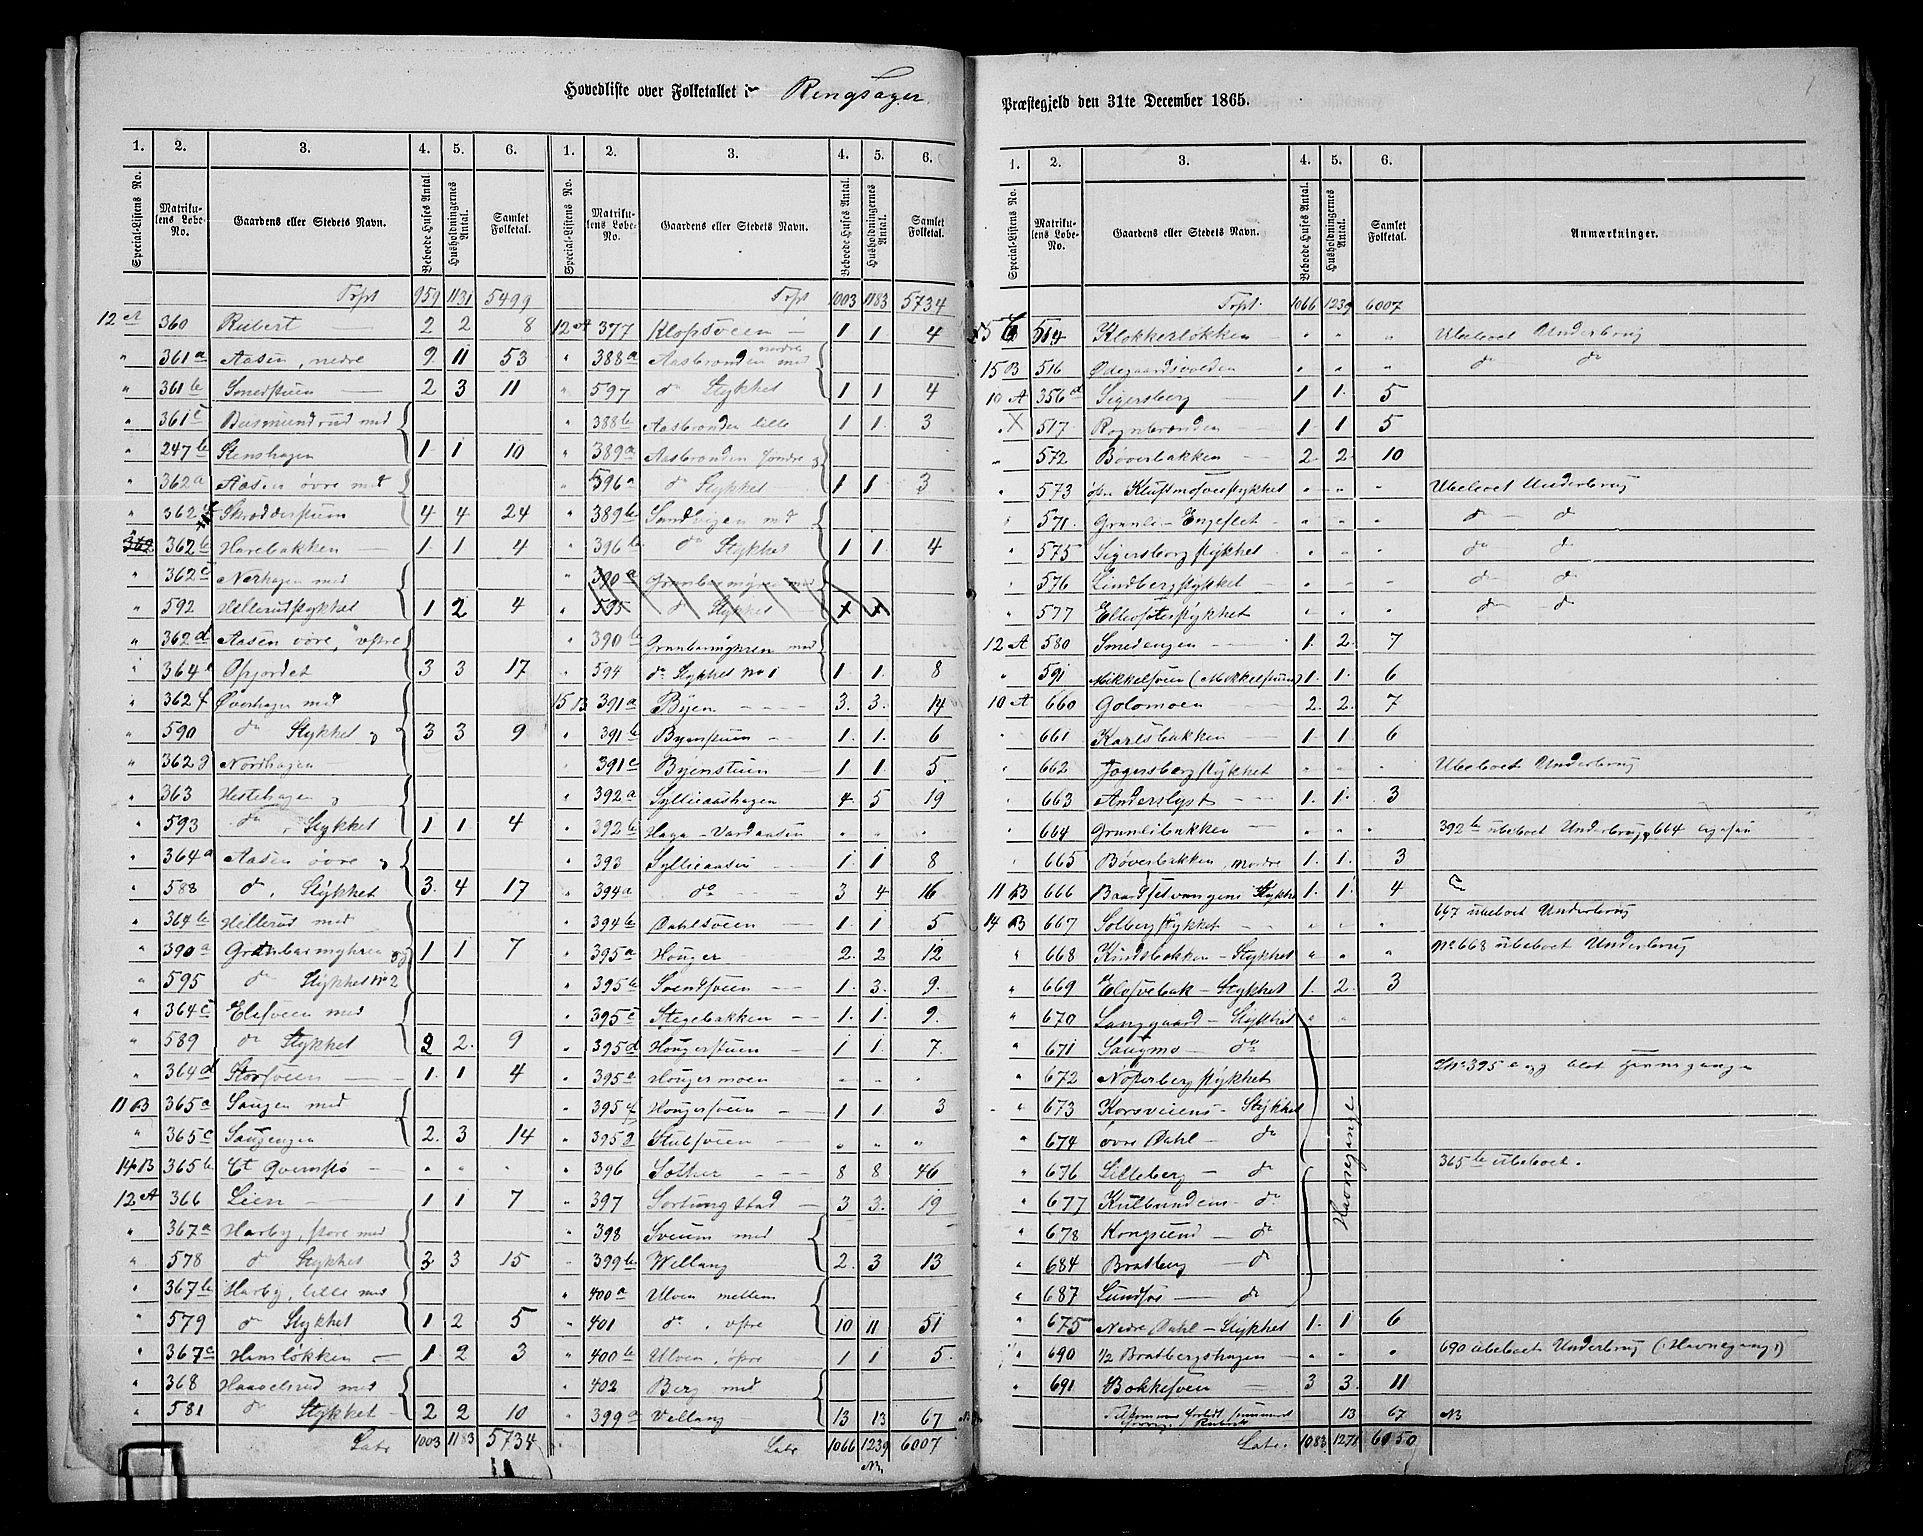 Hovedliste over Folketallet i Ringsager
Præstegjeld den 31te December 1865.
1. 2. 3. 4. 5. 6. 1. 2. 3. 4. 5. 6.
Special-Listens No. Matrikulens Løbe-No. Gaardens eller Stedets Navn. Beboede Huses Antal. Husholdningernes Antal. Samlet Folketal. Special-Listens No. Matrikulens Løbe-No. Gaardens eller Stedets Navn. Beboede Huses Antal. Husholdningernes Antal. Samlet Folketal.
Tvpt 959 1131 5499
12 A 360 Rubert 2 2 8
" 361a Aasen, nedre 9 11 53
" 361b Smedstuen 2 3 11
" 361c Busmundrud med
" 247b Stenshagen 1 1 10
" 362a Aasen øvre med
" 362 Skrædderstuen 4 4 24
362 362b Harebakken 1 1 4
" 362c Nerhagen med
" 592 Hellerudstykket 1 2 4
" 362d Aasen øvre, vestre
" 364e Opjordet 3 3 17
" 362f Øverhagen med
" 590 do Stykket 3 3 9
" 362g Nordhagen
" 363 Hestehagen
" 593 do Stykket 1 1 4
" 364a Aasen øvre
" 588 do, Stykket 3 4 17
" 364b Hillerud med
" 390a Grønbarmyhren 1 1 7
" 595 do Stykket No 2
" 364c Elisveen med
" 589 do Stykket 2 2 9
" 364d Storsveen 1 1 4
11 B 365a Saugen med
" 365c Saugengen 2 3 14
14 B 365b Et Qvernstø " " "
12 A 366 Lien 1 1 7
" 367a Harby, store med
" 578 do Stykket 3 3 15
" 367b Harby, lille med
" 579 do Stykket 1 2 5
" 367c Hansløkken 1 2 3
" 368 Haavelsrud med
" 581 do Stykket 2 2 10
Lats 1003 1183 5734
Tvpt 1003 1183 5734
12 A 377 Klopsveen 1 1 4
" 388a Aasbrænden nordre med
" 597 do Stykket 1 1 4
388b Aasbrænden lille 1 1 3
" 389a Aasbrænden søndre
596a do Stykket 1 1 3
" 389b Sandvigen med
" 396b do Stykket 1 1 4
" 390a Grønbarmyren med
" 595 do Stykket
390b Grønbarmyhren med
" 594 do Stykket No 1 1 1 8
15 B 391a Byen 3 3 14
" 391b Byenstuen 1 1 6
391c Byenstuen 1 1 5
" 392a Sylliaashagen 4 5 19
" 392b Haga-Vardaasen " " "
" 393 Sylliaasen 1 1 8
" 394a do 3 4 16
" 394b Dahlsveen 1 1 5
" 395a Houger 2 2 12
" 395b Svendsveen 1 3 9
395c Stegebakken 1 1 9
" 395d Hougerstuen 1 1 7
" 395e Hougermoen " " "
" 395f Hougersveen 1 1 3
" 395g Stubsveen " " "
396 Sother 8 8 46
" 397 Sortungstad 3 3 19
" 398 Sveum med
399b Wellang 2 3 13
" 400a Ulven mellem
" 401 do, østre 10 11 51
" 400b Ulven, øvre 1 1 5
" 402 Berg med
" 399a Vellang 13 13 67
Lats 1066 1239 6007
NB
1. 2. 3. 4. 5. 6.
Special-Listens No. Matrikulens Løbe-No. Gaardens eller Stedets Navn. Beboede Huses Antal. Husholdningernes Antal. Samlet Folketal. Anmærkninger.
Tvpt. 1066 1239 6007
514 Klokkerløkken " " " Ubeboet Underbrug
15 B 516 Ødegaardsvolden " " " do do
10 A 356d Sigersberg 1 1 5
" X 517 Rognbrænden 1 1 5
" 572 Bøverbakken 2 2 10
" 573 Kluftmosestykket " " " Ubeboet Underbrug
571 Grønli-Engeflet " " " do do
" 575 Sigersbergstykket " " " do do
" 576 Lindbergstykket " " " do do
" 577 Ellevseterstykket " " " do do
12 A 580 Smedengen 1 2 7
" 591 Mikkelsveen (Mikkelstuen) 1 1 6
10 A 660 Golomoen 2 2 7
661 Karlsbakken 1 1 6
662 Jogersbergstykket Ubeboet Underbrug
" 663 Anderslyst 1 1 3
664 Grønlibakken " " " 392b ubeboet Underbrug 664 ligesaa
665 Bøverbakken, nordre 1 1 3
11 B 666 Baardsetvangens Stykket 1 1 4
14 B 667 Solbergstykket " " " 667 ubeboet Underbrug
" 668 Kindsbakken-Stykket " " " No 668 ubeboet Underbrug
" 669 Elvsvebak-Stykket 1 2 3
" 670 Langgaard-Stykket " "
" 671 Saugmo - do
" 672 Nosterbergstykket No 395 e og g blot Havnegange
" 673 Korsveiens-Stykket
" 674 Øvre Dahl - do
" 676 Lilleberg - do 365b ubeboet.
" 677 Kulbunden - do
" 678 Kongslund - do
" 684 Bratberg - do
" 687 Lundsve - do
Havnegange
" 675 Nedre Dahl-Stykket 1 1 6
" 690 1/2 Bratbergshagen " " " 690 ubeboet Underbrug (Havnegang)
" 691 Bakkesveen 3 3 11
13 67 NB
Lats. 1083 1271 6150